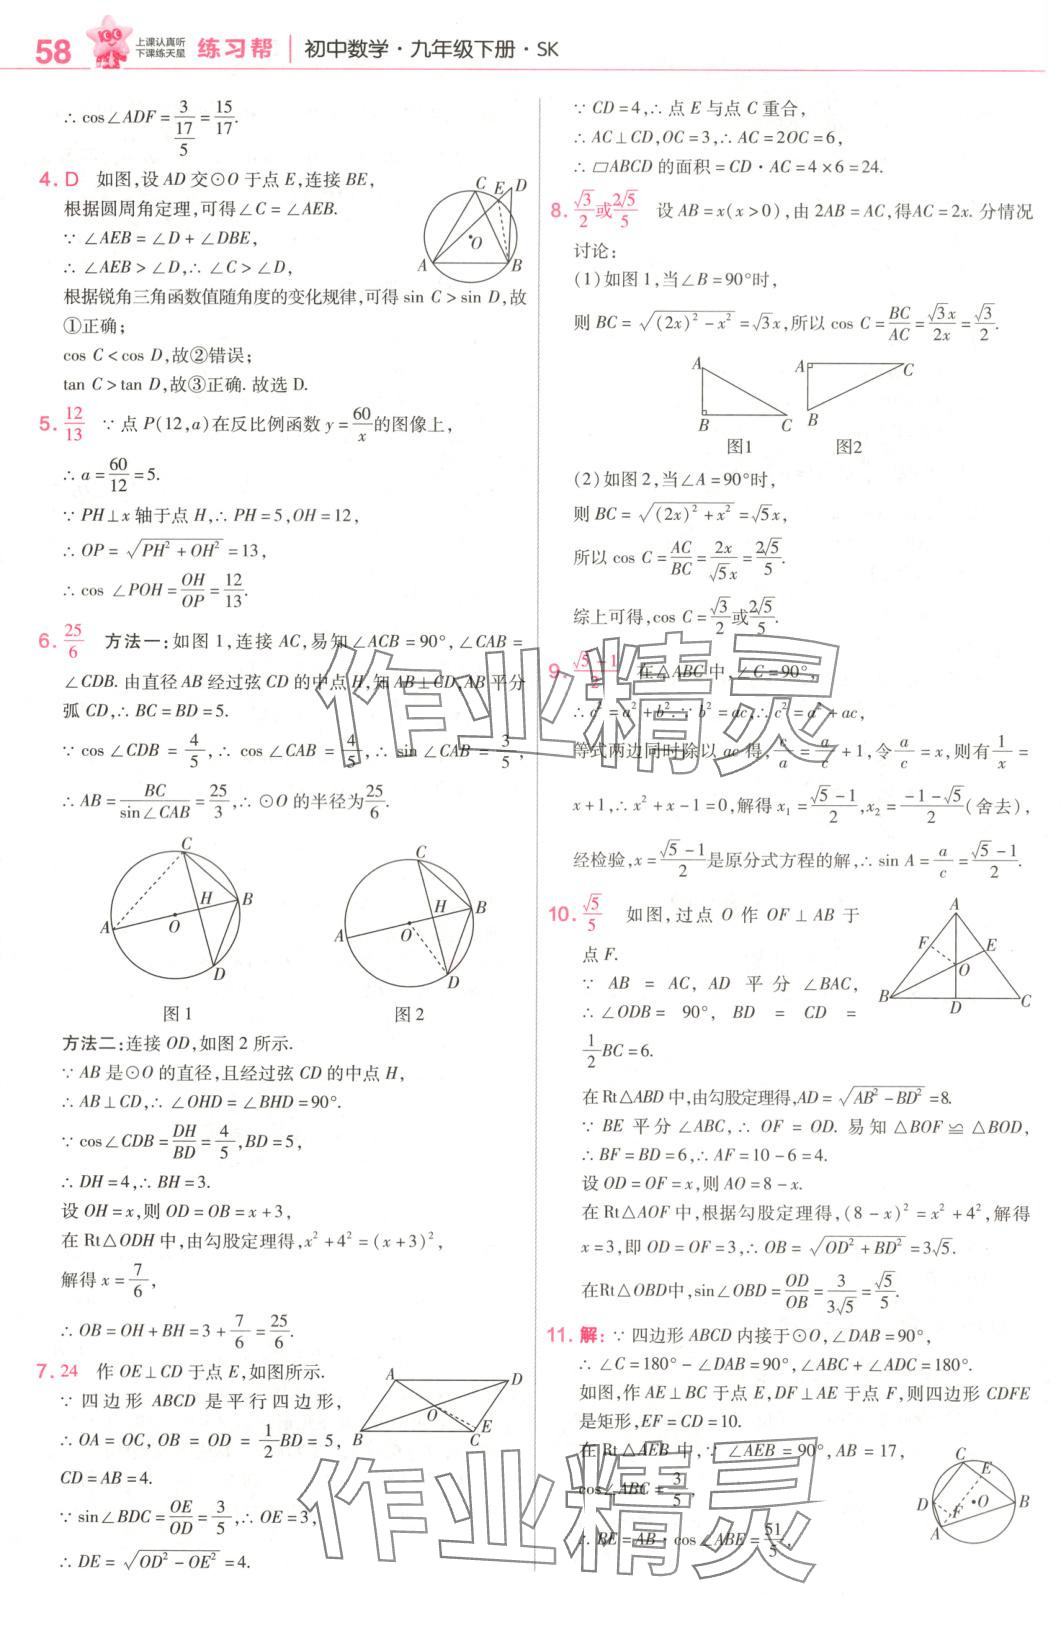 58 上课认真听 下课练天星 练习帮 初中数学·九年级下册·SK
∴ cos∠ADF = 3/(17/5) = 15/17.
4. D 如图,设 AD 交⊙O 于点 E,连接 BE,
根据圆周角定理,可得∠C = ∠AEB.
∵ ∠AEB = ∠D + ∠DBE,
∴ ∠AEB > ∠D,∴ ∠C > ∠D,
根据锐角三角函数值随角度的变化规律,可得 sin C > sin D,故
①正确;
cos C < cos D,故②错误;
tan C > tan D,故③正确. 故选 D.
C E D
O
A B
5. 12/13 ∵ 点 P(12,a)在反比例函数 y = 60/x 的图像上,
∴ a = 60/12 = 5.
∵ PH⊥x 轴于点 H,∴ PH = 5,OH = 12,
∴ OP = √(PH² + OH²) = 13,
∴ cos ∠POH = OH/OP = 12/13.
6. 25/6 方法一:如图 1,连接 AC,易知∠ACB = 90°,∠CAB =
∠CDB. 由直径 AB 经过弦 CD 的中点 H,知 AB⊥CD,AB 平分
弧 CD,∴ BC = BD = 5.
∵ cos ∠CDB = 4/5,∴ cos ∠CAB = 4/5,∴ sin ∠CAB = 3/5,
∴ AB = BC/sin∠CAB = 25/3,∴ ⊙O 的半径为 25/6.
C
H B
A O
D
图 1
C
H B
A O
D
图 2
方法二:连接 OD,如图 2 所示.
∵ AB 是⊙O 的直径,且经过弦 CD 的中点 H,
∴ AB⊥CD,∴ ∠OHD = ∠BHD = 90°.
∵ cos∠CDB = DH/BD = 4/5,BD = 5,
∴ DH = 4,∴ BH = 3.
设 OH = x,则 OD = OB = x + 3,
在 Rt△ODH 中,由勾股定理得,x² + 4² = (x + 3)²,
解得 x = 7/6,
∴ OB = OH + BH = 3 + 7/6 = 25/6.
7. 24 作 OE⊥CD 于点 E,如图所示.
∵ 四边形 ABCD 是平行四边形,
∴ OA = OC, OB = OD = 1/2 BD = 5,
CD = AB = 4.
∵ sin∠BDC = OE/OD = 3/5,∴ OE = 3,
∴ DE = √(OD² − OE²) = 4.
A D
O
E
B C
∵ CD = 4,∴ 点 E 与点 C 重合,
∴ AC⊥CD,OC = 3,∴ AC = 2OC = 6,
∴ ▱ABCD 的面积 = CD · AC = 4 × 6 = 24.
8. √3/2 或 2√5/5 设 AB = x(x > 0),由 2AB = AC,得AC = 2x. 分情况
讨论:
(1)如图 1,当∠B = 90°时,
则 BC = √((2x)² − x²) = √3x,所以 cos C = BC/AC = √3x/2x = √3/2.
A
B C
图1
A C
B
图2
(2)如图 2,当∠A = 90°时,
则 BC = √((2x)² + x²) = √5x,
所以 cos C = AC/BC = 2x/√5x = 2√5/5.
综上可得,cos C = √3/2 或 2√5/5.
9. (√5 − 1)/2 在△ABC 中,∠C = 90°,
∴ c² = a² + b². ∵ b² = ac,∴ c² = a² + ac,
等式两边同时除以 ac 得, c/a = a/c + 1,令 a/c = x,则有 1/x =
x + 1,∴ x² + x − 1 = 0,解得 x₁ = (√5 − 1)/2,x₂ = (−1 − √5)/2(舍去),
经检验,x = (√5 − 1)/2 是原分式方程的解,∴ sin A = a/c = (√5 − 1)/2.
10. √5/5 如图,过点 O 作 OF⊥AB 于
点 F.
∵ AB = AC, AD 平分∠BAC,
∴ ∠ODB = 90°, BD = CD =
1/2 BC = 6.
A
F E
O
B D C
在 Rt△ABD 中,由勾股定理得,AD = √(AB² − BD²) = 8.
∵ BE 平分∠ABC,∴ OF = OD. 易知△BOF ≌ △BOD,
∴ BF = BD = 6,∴ AF = 10 − 6 = 4.
设 OD = OF = x,则 AO = 8 − x.
在 Rt△AOF 中,根据勾股定理得,(8 − x)² = x² + 4²,解得
x = 3,即 OD = OF = 3,∴ OB = √(OD² + BD²) = 3√5.
在Rt△OBD中,sin∠OBD = OD/OB = 3/3√5 = √5/5.
11. 解:∵ 四边形 ABCD 内接于⊙O,∠DAB = 90°,
∴ ∠C = 180° − ∠DAB = 90°,∠ABC + ∠ADC = 180°.
如图,作 AE⊥BC 于点 E,DF⊥AE 于点 F,则四边形 CDFE
是矩形,EF = CD = 10.
在 Rt△AEB 中,∵ ∠AEB = 90°,AB = 17,
cos∠ABC = 3/5,
∴ BE = AB · cos∠ABE = 51/5,
C
E
D O B
F
A
作业精灵
作业精灵